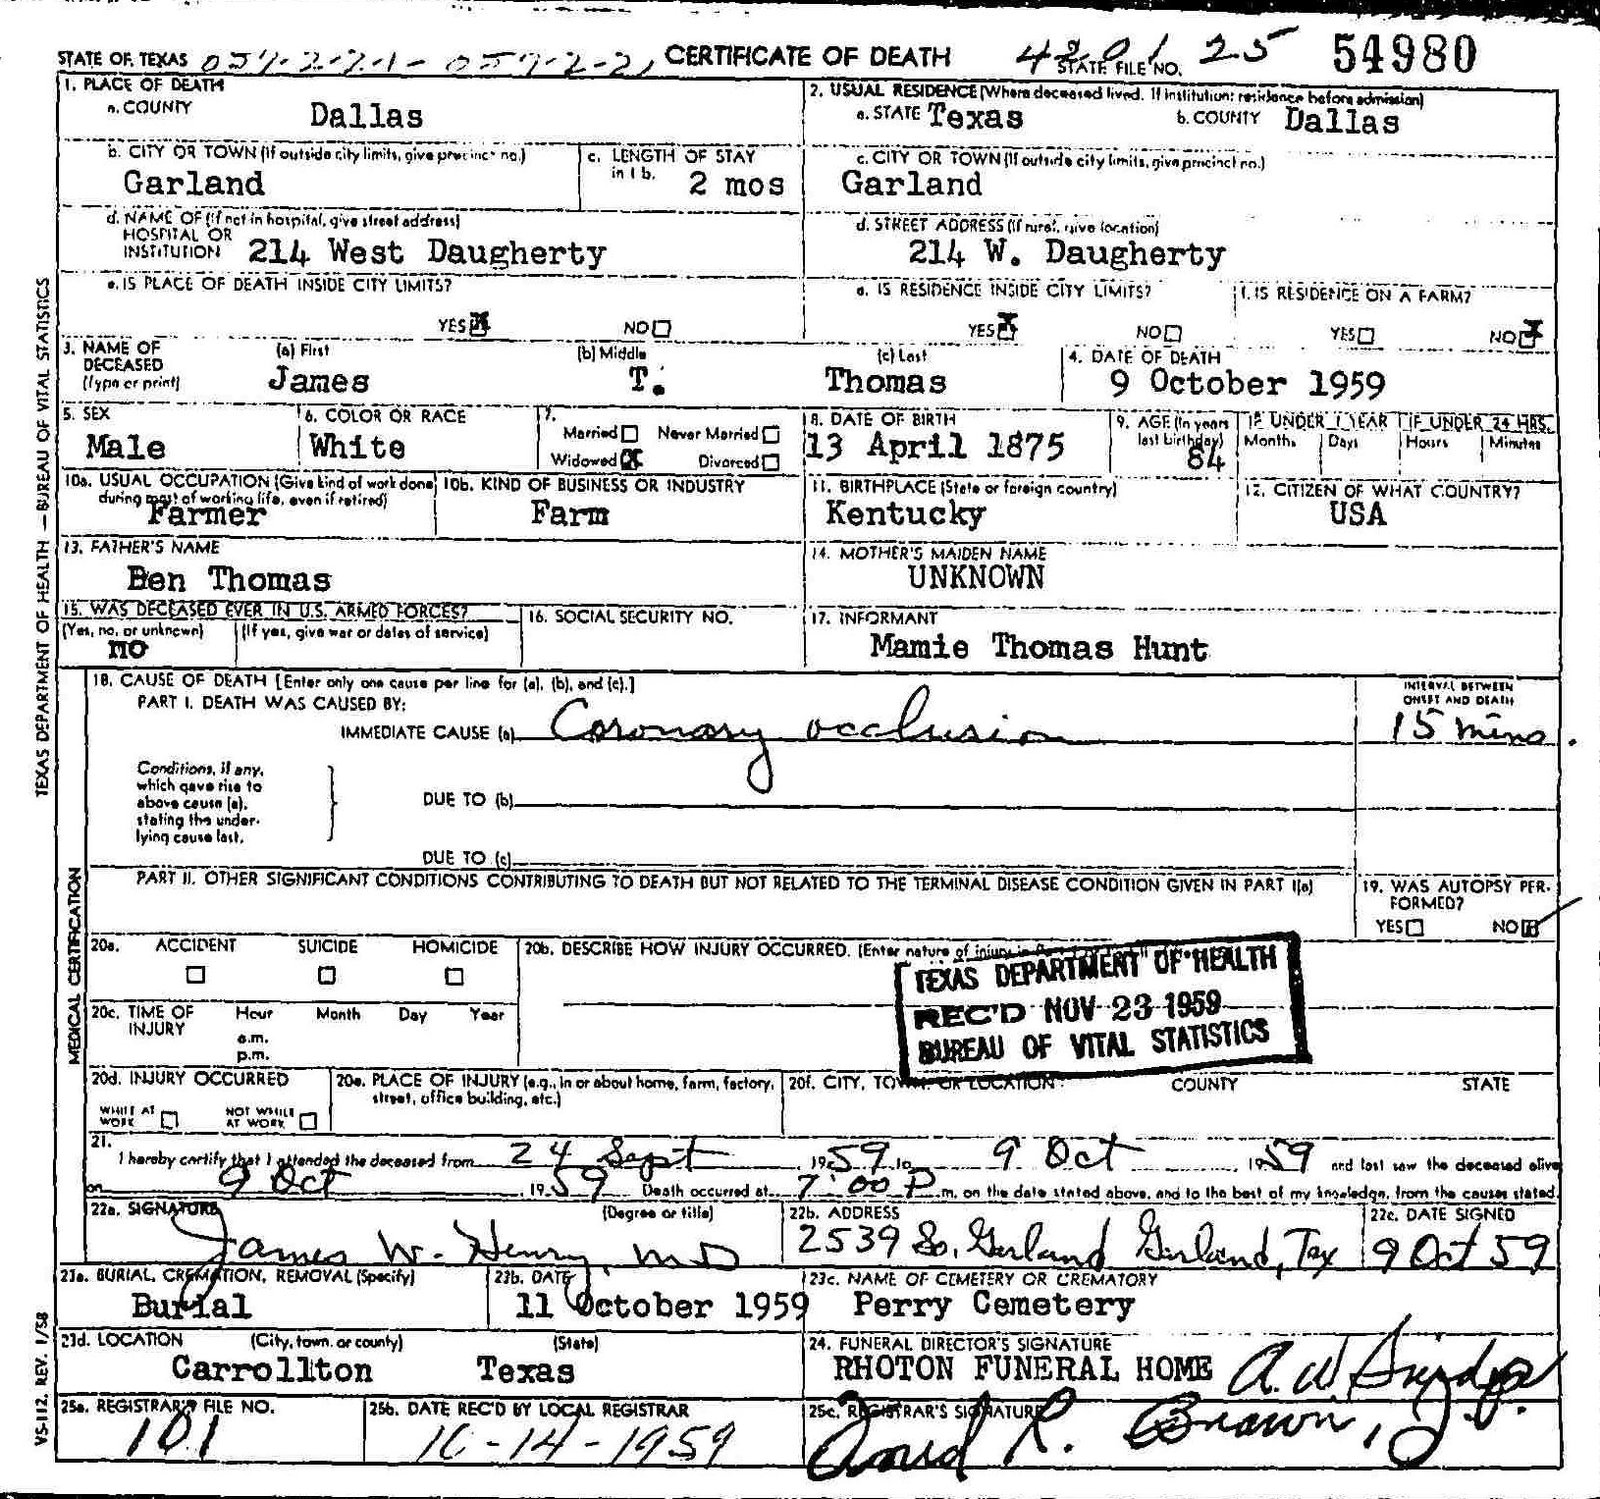 STATE OF TEXAS 057-2-27-1- 057-2-2, CERTIFICATE OF DEATH 4201 25 STATE FILE NO. 54980
1. PLACE OF DEATH
a. COUNTY Dallas
2. USUAL RESIDENCE (Where deceased lived. If institution: residence before admission)
a. STATE Texas b. COUNTY Dallas
b. CITY OR TOWN (If outside city limits, give precinct no.) Garland
c. LENGTH OF STAY in 1b. 2 mos
c. CITY OR TOWN (If outside city limits, give precinct no.)
Garland
d. NAME OF (If not in hospital, give street address)
HOSPITAL OR
INSTITUTION 214 West Daugherty
d. STREET ADDRESS (If rural, give location)
214 W. Daugherty
e. IS PLACE OF DEATH INSIDE CITY LIMITS?
YES X NO
e. IS RESIDENCE INSIDE CITY LIMITS?
YES X NO
f. IS RESIDENCE ON A FARM?
YES NO X
3. NAME OF DECEASED (Type or print)
(a) First James
(b) Middle T.
(c) Last Thomas
4. DATE OF DEATH
9 October 1959
5. SEX
Male
6. COLOR OR RACE
White
7.
Married Never Married
Widowed X Divorced
8. DATE OF BIRTH
13 April 1875
9. AGE (In years last birthday) 84
IF UNDER 1 YEAR
Months Days
IF UNDER 24 HRS.
Hours Minutes
10a. USUAL OCCUPATION (Give kind of work done during most of working life, even if retired)
Farmer
10b. KIND OF BUSINESS OR INDUSTRY
Farm
11. BIRTHPLACE (State or foreign country)
Kentucky
12. CITIZEN OF WHAT COUNTRY?
USA
13. FATHER'S NAME
Ben Thomas
14. MOTHER'S MAIDEN NAME
UNKNOWN
15. WAS DECEASED EVER IN U.S. ARMED FORCES?
(Yes, no, or unknown) (If yes, give war or dates of service)
no
16. SOCIAL SECURITY NO.
17. INFORMANT
Mamie Thomas Hunt
18. CAUSE OF DEATH [Enter only one cause per line for (a), (b), and (c).]
PART I. DEATH WAS CAUSED BY:
IMMEDIATE CAUSE (a) Coronary occlusion
INTERVAL BETWEEN ONSET AND DEATH
15 mins.
Conditions, if any,
which gave rise to
above cause (a),
stating the under-
lying cause last.
DUE TO (b)
DUE TO (c)
PART II. OTHER SIGNIFICANT CONDITIONS CONTRIBUTING TO DEATH BUT NOT RELATED TO THE TERMINAL DISEASE CONDITION GIVEN IN PART I(a)
19. WAS AUTOPSY PER-
FORMED?
YES NO
20a. ACCIDENT SUICIDE HOMICIDE
20b. DESCRIBE HOW INJURY OCCURRED. (Enter nature of injury in
TEXAS DEPARTMENT OF HEALTH
REC'D NOV 23 1959
BUREAU OF VITAL STATISTICS
20c. TIME OF INJURY
Hour Month Day Year
a.m.
p.m.
20d. INJURY OCCURRED
WHILE AT WORK NOT WHILE AT WORK
20e. PLACE OF INJURY (e.g., in or about home, farm, factory, street, office building, etc.)
20f. CITY, TOWN, OR LOCATION COUNTY STATE
21.
I hereby certify that I attended the deceased from 24 Sept 1959 to 9 Oct 1959 and last saw the deceased alive
on 9 Oct 1959 Death occurred at 7:00 P m. on the date stated above, and to the best of my knowledge, from the causes stated.
22a. SIGNATURE (Degree or title)
James W. Henry, MD
22b. ADDRESS
2539 So. Garland Garland, Tex
22c. DATE SIGNED
9 Oct 59
23a. BURIAL, CREMATION, REMOVAL (Specify)
Burial
23b. DATE
11 October 1959
23c. NAME OF CEMETERY OR CREMATORY
Perry Cemetery
23d. LOCATION (City, town, or county) (State)
Carrollton Texas
24. FUNERAL DIRECTOR'S SIGNATURE
RHOTON FUNERAL HOME A. W.
25a. REGISTRAR'S FILE NO.
101
25b. DATE REC'D BY LOCAL REGISTRAR
10-14-1959
25c. REGISTRAR'S SIGNATURE
R. Brown, J.P.
TEXAS DEPARTMENT OF HEALTH — BUREAU OF VITAL STATISTICS
MEDICAL CERTIFICATION
VS-112. REV. 1/58